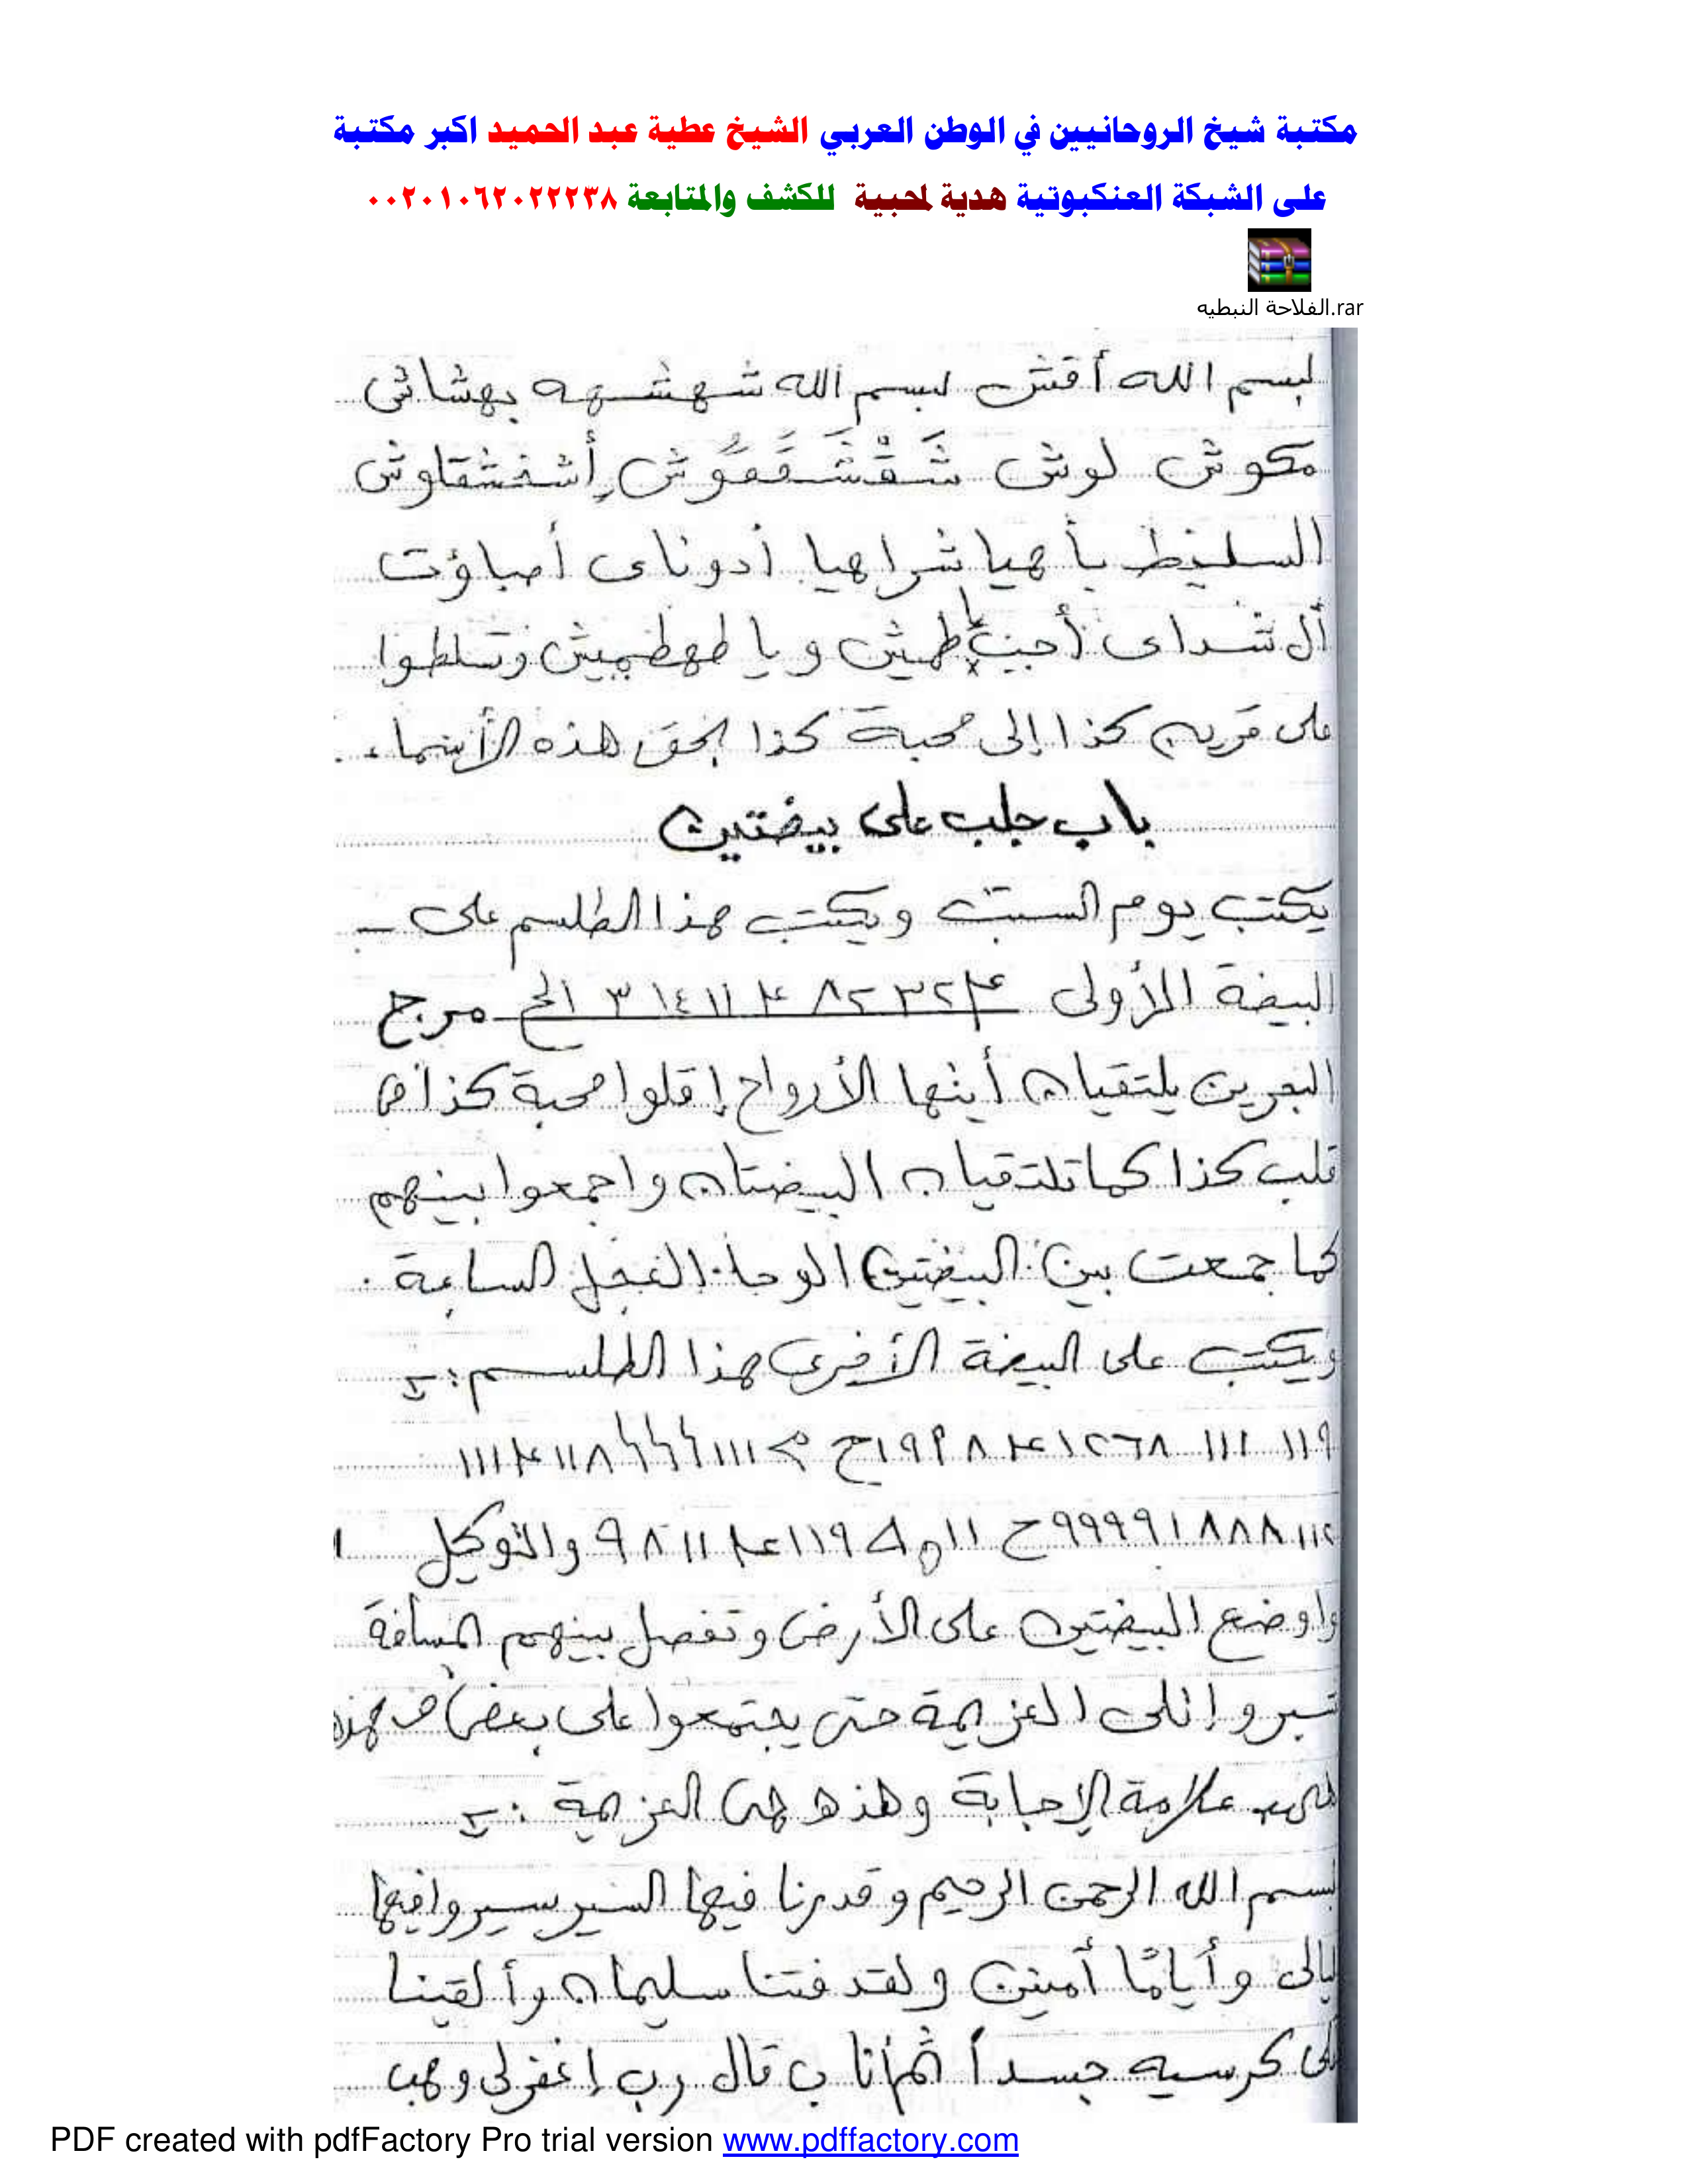 مكتبة شيخ الروحانيين في الوطن العربي الشيخ عطية عبد الحميد اكبر مكتبة
على الشبكة العنكبوتية هدية لمحبية للكشف والمتابعة ٠٠٢٠١٠٦٢٠٢٢٢٣٨
الفلاحة النبطيه.rar
بسم الله أقش بسم الله شهشهه بهشاش
مكوش لوش أشخشقاوش
بأهيا شراهيا أدوناى أصباؤت
أل شداى أجب يا طمش ويا طهطميش وتسلطوا
على قرين كذا إلى محبة كذا بحق هذه الأسماء.
باب جلب على بيضتين
يكتب يوم السبت ويكتب هذا الطلسم على
البيضة الأولى مرج
البحرين يلتقيان أيتها الأرواح إقلوا محبة كذا فى
قلب كذا كما تلتقيان البيضتان واجمعوا بينهم
كما جمعت بين البيضتين الوحا العجل الساعة.
ويكتب على البيضة الأخرى هذا الطلسم:
والتوكيل
واوضع البيضتين على الأرض وتفصل بينهم المسافة
شبر و إتلى العزيمة حتى يجتمعوا على بعض فهذه
علامة الإجابة وهذه هى العزيمة:
بسم الله الرحمن الرحيم وقدرنا فيها السير سيروا فيها
ليالى وأيامًا أمنين ولقد فتنا سليمان وألقينا
على كرسيه جسداً ثم أناب قال رب إغفرلى وهب
PDF created with pdfFactory Pro trial version www.pdffactory.com